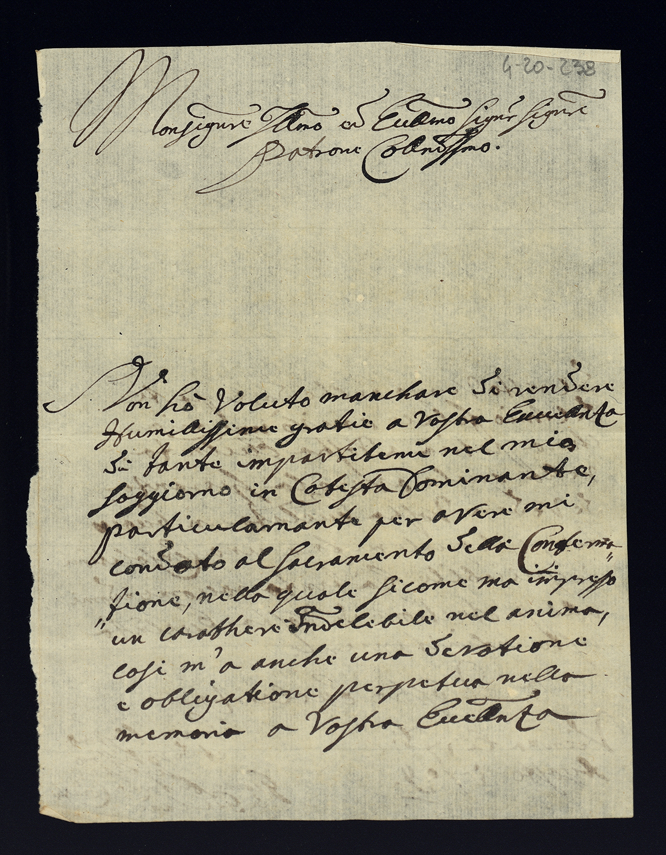 4-20-238
Monsignure Illmo ed Eccllmo Signr Signure
Patrone Collmissimo.
Non hò Voluto manchare di rendere
Humilissime gratie a Vostra Eccellenza
di tante impartiteme nel mio
soggiorno in Cotesta Dominante,
particularmante per avere mi
condoto al sacramento della Conferma
"tione, nella quale sicome ma impresso
un carathere Indelebile nel anima,
cosi m'a anche una devotione
e obligatione perpetua nella
memoria a Vostra Eccellenza